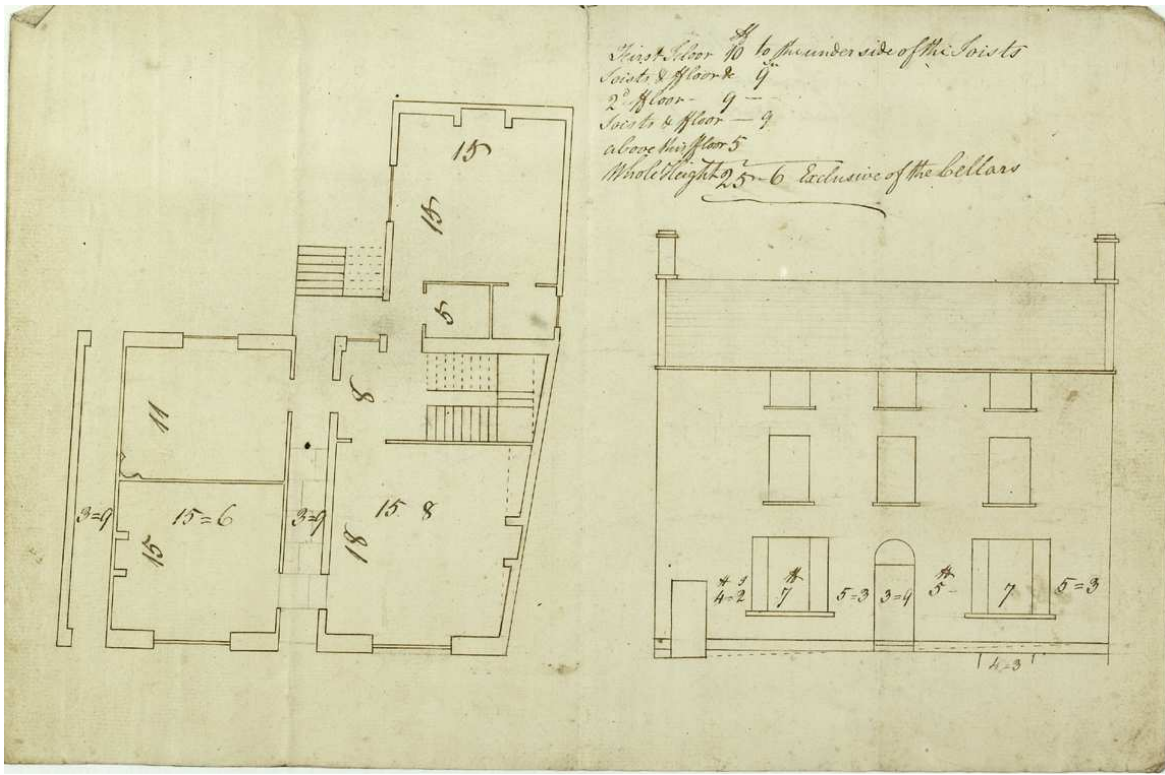 First Floor 10 ft to the under side of the Joists
Joists & floor 9 In
2d floor - 9 —
Joists & floor — 9
above this floor 5
Whole Height 25-6 Exclusive of the Cellars
15
15
5
8
11
3=9
15=6
15
3=9
15 8
18
ft I
4=2
ft
7
5=3
3=9
ft
5-
7
5=3
4=3